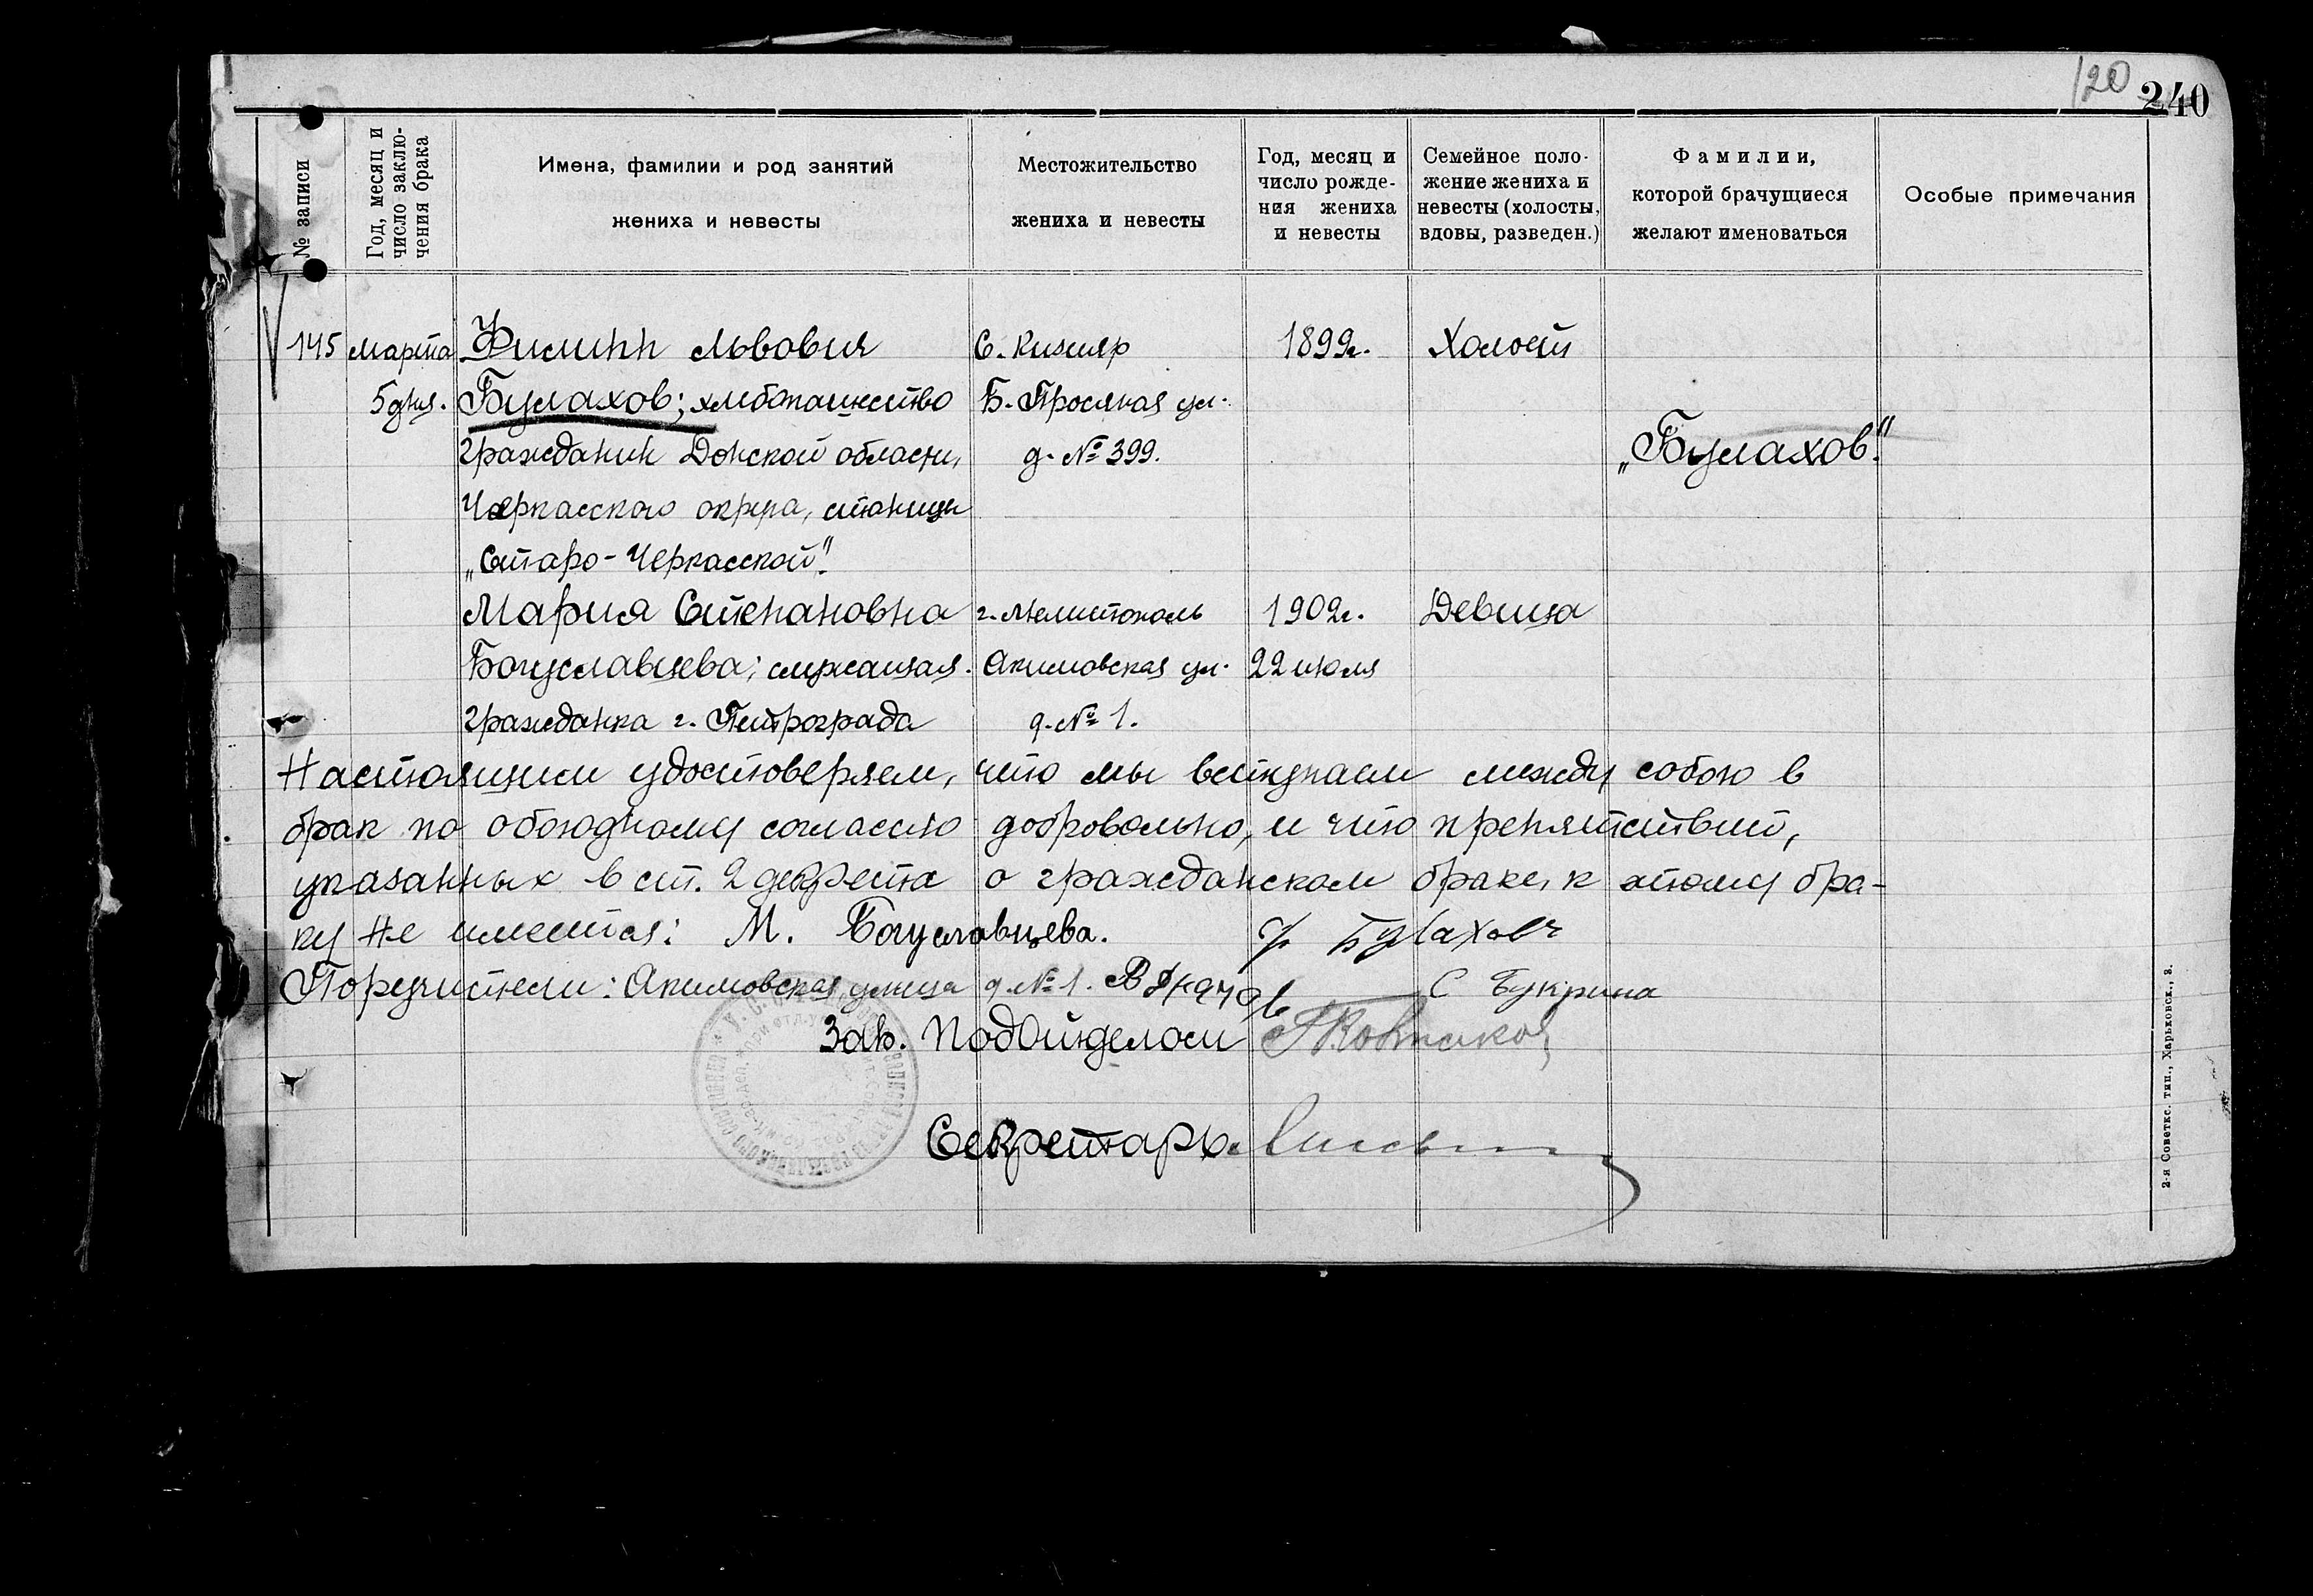 120 240
№ записи
Год, месяц и число заключения брака
Имена, фамилии и род занятий
жениха и невесты
Местожительство
жениха и невесты
Год, месяц и
число рожде-
ния жениха
и невесты
Семейное поло-
жение жениха и
невесты (холосты,
вдовы, разведен.)
Фамилии,
которой брачущиеся
желают именоваться
Особые примечания
145 марта Филипп Львович С. Кизляр 1899г. Холост
5 дня. Булахов; хлебопашество Б. ул.
гражданин Донской области, д. № 399. „Булахов".
Черкасского округа, станицы
„Старо-Черкасской".
Мария Степановна г. Мелитополь 1902г. Девица
Богуславцева; служащая. Акимовская ул. 22 июля
гражданка г. Петрограда д. № 1.
Настоящим удостоверяем, что мы вступаем между собою в
брак по обоюдному согласию добровольно, и что препятствий,
указанных в ст. 2 декрета о гражданском браке, к этому бра-
ку не имеется: М. Богуславцева. Булахов
Поручители: Акимовская улица д. № 1. С Букрина
Зав. Подотделом
Секретарь
2-я Советск. тип., Харьковск., 8.